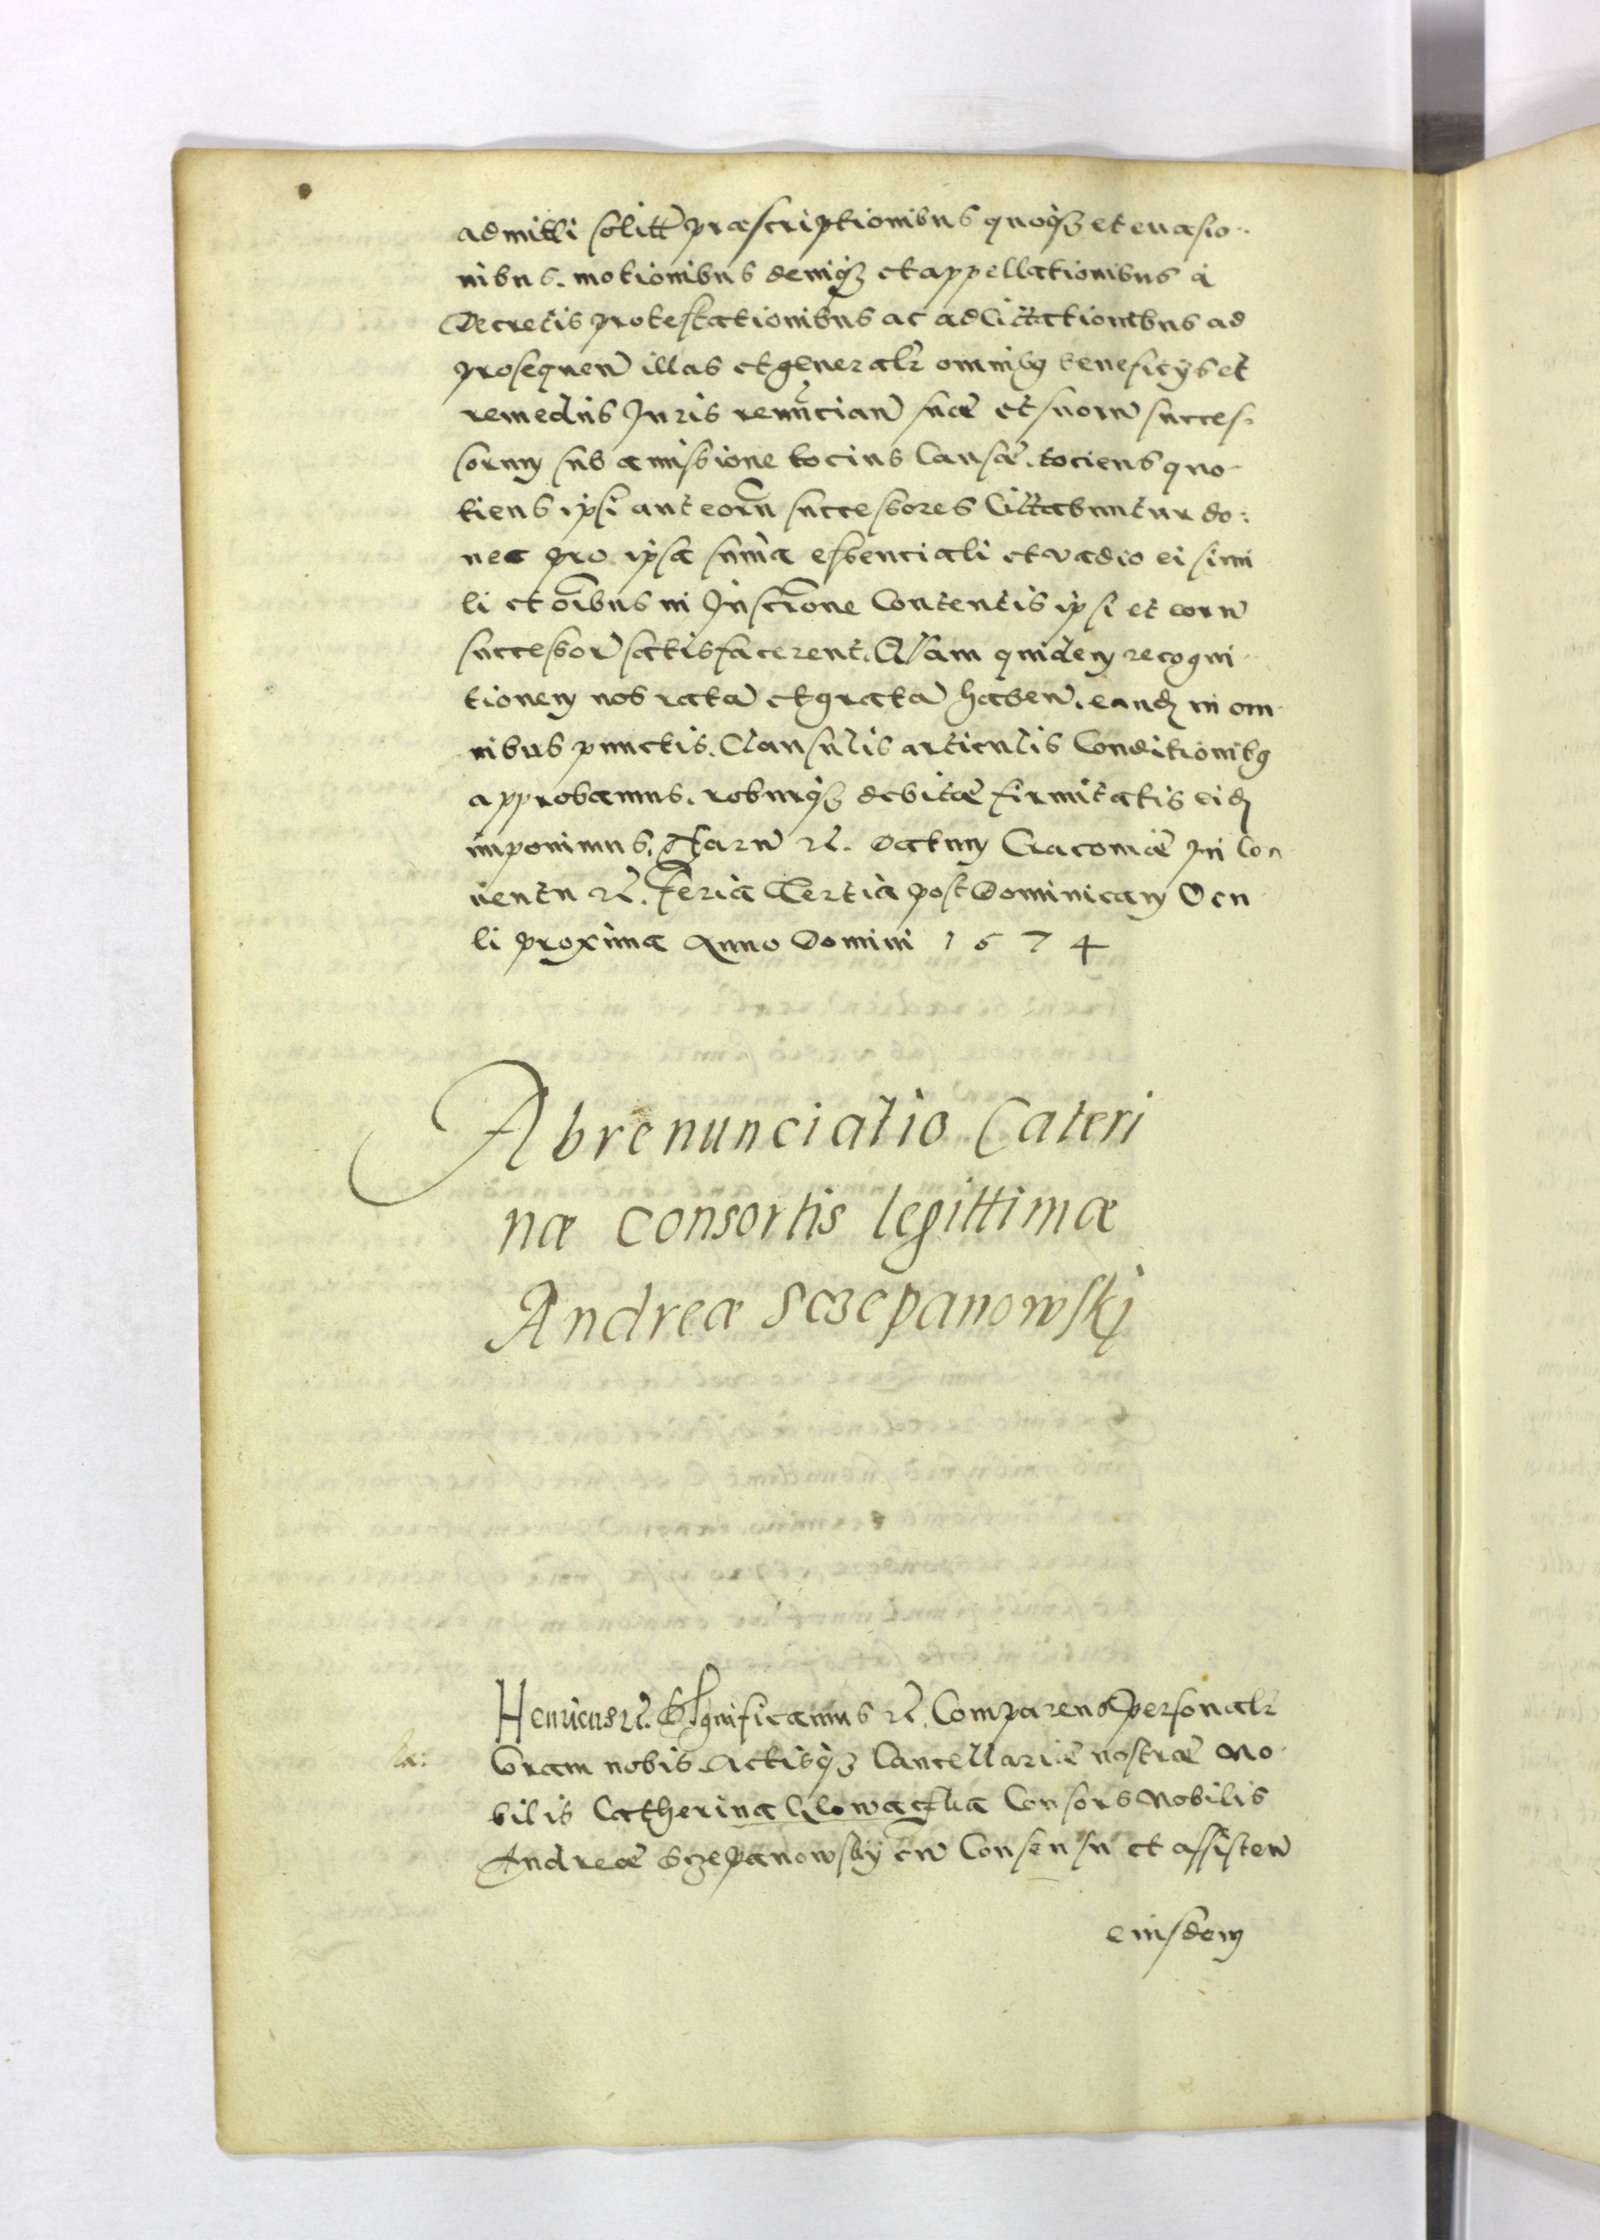 admitti solitt præscriptionibus quoq3 et euasio-
nibus. motionibus deniq3 et appellationibus à
Decretis protestationibus ac ad Cittationibus ad
prosequen illas et generalr omnibg beneficÿs et
remediis Juris renuncian suæ et suorū succes-
sorum sub amissione tocius Causæ. tociens quo-
tiens ipsi aut eorū successores Cittabuntur do:
nec pro ipsa suma essenciali et vadio ei simi
li et oibus in Inscrione Contentis ipsi et eorū
successor satisfacerent. Quam quidem recogni-
tionem nos rata et grata haben. eand in om-
nibus punctis. Clausulis articulis Conditionibg
approbamus. roburq3 debitæ firmitatis eid
imponimus. Harū rc. Datum Cracouiæ In Con
uentu rc. Feria Tertia post Dominicam Ocu-
li proxima Anno Domini 1574
Abrenunciatio Cateri
næ Consortis legittimæ
Andreæ Sczepanowskj
Henricus rc. Significamus rc. Comparens personalr
Coram nobis Actisq3 Cancellariæ nostræ No-
bilis Catherina Glowaczka Consors Nobilis
Andreæ Sczepanowsky cū Consensu et assisten
eiusdem